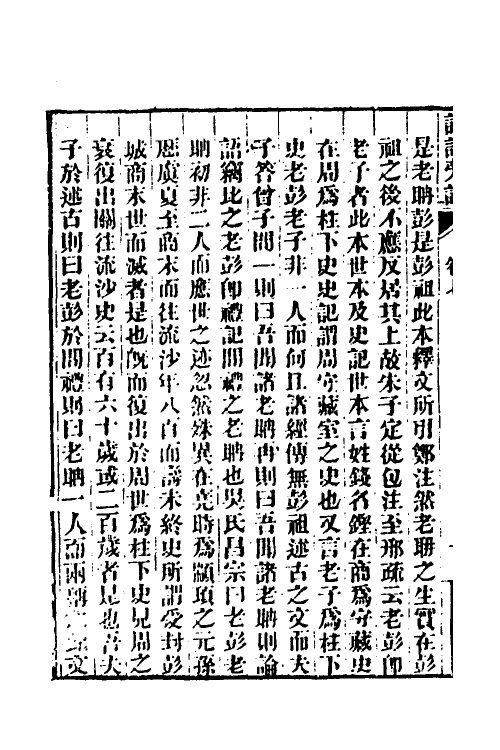 是老聃彭是彭祖此本釋文所引鄭注然老聃之生實在彭
祖之後不應反居其上故朱子定從包注至邢疏云老彭卽
老子者此本世本及史記世本言姓錢名鏗在商爲守藏史
在周爲柱下史史記謂周守藏室之史也又言老子爲柱下
史老彭老子非一人而何且諸經傳無彭祖述古之文而夫
子答曾子問一則曰吾聞諸老聃再則曰吾聞諸老聃則論
語竊比之老彭卽禮記問禮之老聃也吳氏昌宗曰老彭老
聃初非二人而應世之迹忽然殊異在堯時爲顓頊之元孫
歷虞夏至商末而往流沙年八百而壽未終史所謂受封彭
城商末世而滅者是也旣而復出於周世爲柱下史見周之
衰復出關往流沙史云百有六十歲或二百歲者是也吾夫
子於述古則曰老彭於問禮則曰老聃一人而兩稱文